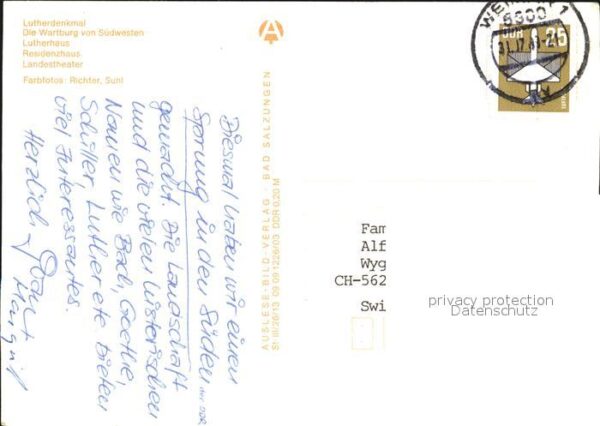 Lutherdenkmal
Die Wartburg von Südwesten
Lutherhaus
Residenzhaus
Landestheater
Farbfotos: Richter, Suhl
Diesmal haben wir einen
Sprung in den Süden der DDR
gemacht. Die Landschaft
und die vielen historischen
Namen wie Bach, Goethe,
Schiller, Luther etc bieten
viel Interessantes.
Herzlich
Margrit
AUSLESE-BILD-VERLAG · BAD SALZUNGEN
DDR 0,20 M
WEIMAR 1
5300
DDR 25
Fam
Alf
Wyg
CH-562
Swi
privacy protection
Datenschutz